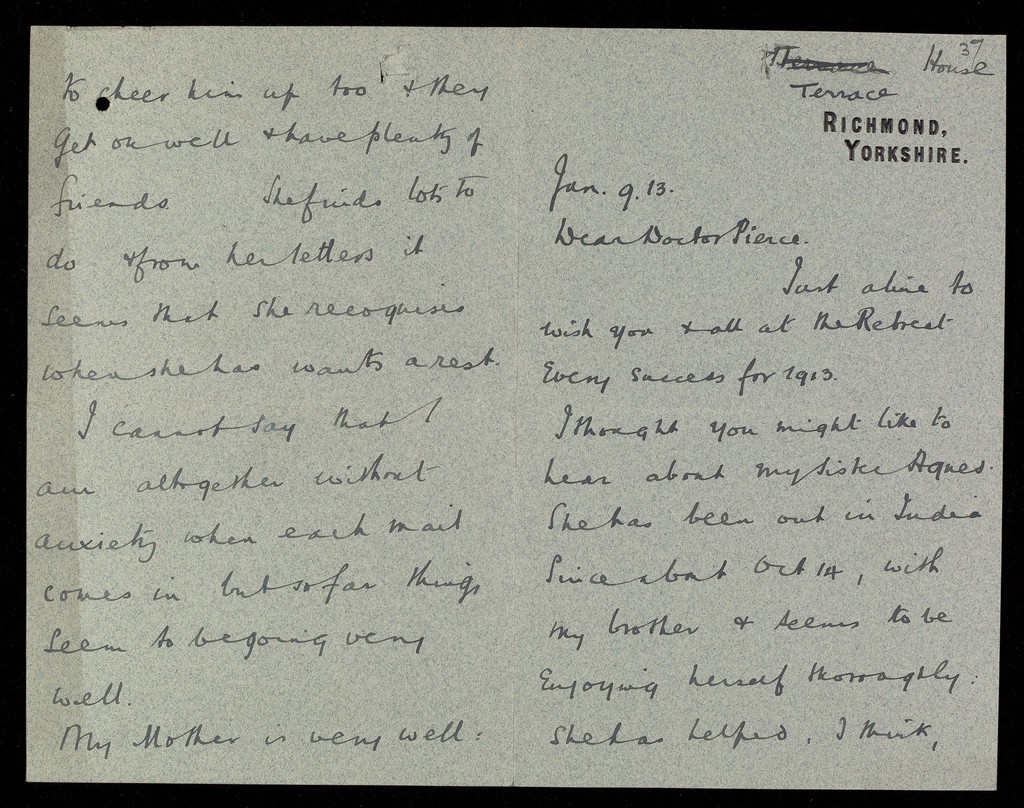 37
Terrace House
Terrace
RICHMOND,
YORKSHIRE.
Jan. 9. 13.
Dear Doctor Pierce.
Just a line to
wish you & all at the Retreat
Every success for 1913.
I thought you might like to
hear about my sister Agnes.
She has been out in India
Since about Oct 14, with
my brother & seems to be
Enjoying herself thoroughly.
She has helped, I think,
to cheer him up too & they
Get on well & have plenty of
friends. She finds lots to
do & from her letters it
seems that she recognises
when she has wants a rest.
I cannot say that I
am altogether without
anxiety when each mail
comes in but so far things
seem to be going very
well.
My Mother is very well: